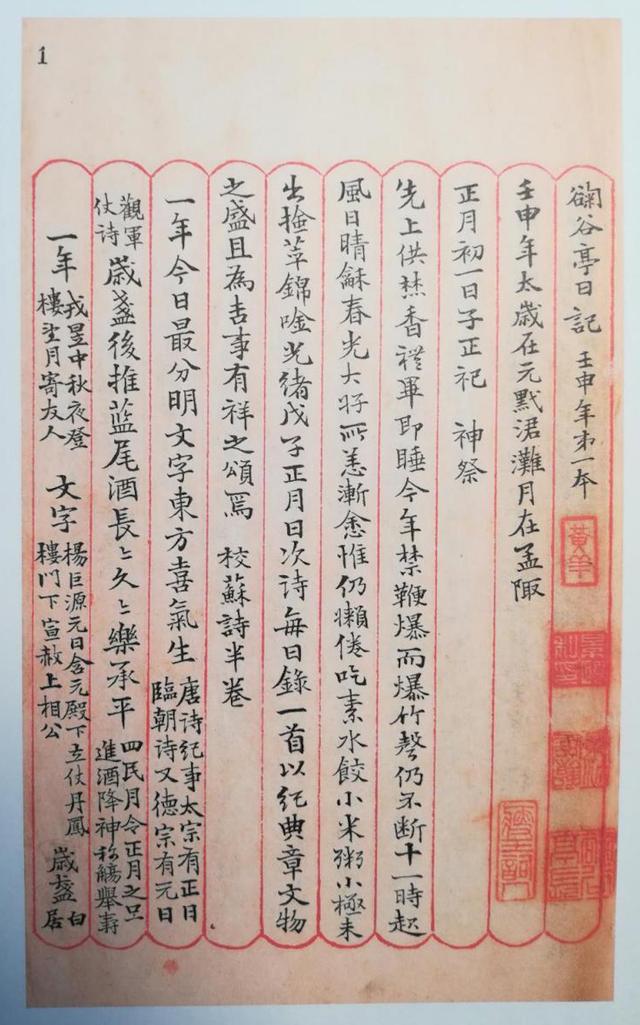 1
籋谷亭日記 壬申年第一本
壬申年太歲在元默涒灘月在孟陬
正月初一日子正祀 神祭
先上供焚香禮畢即睡今年禁鞭爆而爆竹聲仍不斷十一時起
風日晴龢春光大好所恙漸愈惟仍懶倦吃素水餃小米粥小極未
出撿莘錦唫光緒戊子正月日次詩每日錄一首以紀典章文物
之盛且為吉事有祥之頌焉 校蘇詩半卷
一年今日最分明文字東方喜氣生 唐詩紀事太宗有正日
臨朝詩又德宗有元日
觀軍
仗詩 歲盞後推藍尾酒長〻久〻樂承平 四民月令正月之旦
進酒降神称觴舉壽
一年 戎昱中秋夜澄
樓望月寄友人 文字 楊巨源元日含元殿下立仗丹鳳
樓門下宣赦上相公 歲盞 白
居
黃羊